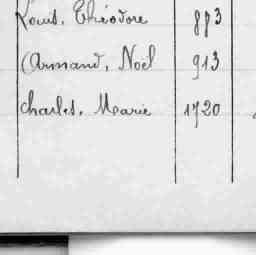 Louis, Théodore 883
Armand, Noël 913
Charles, Marie 1720